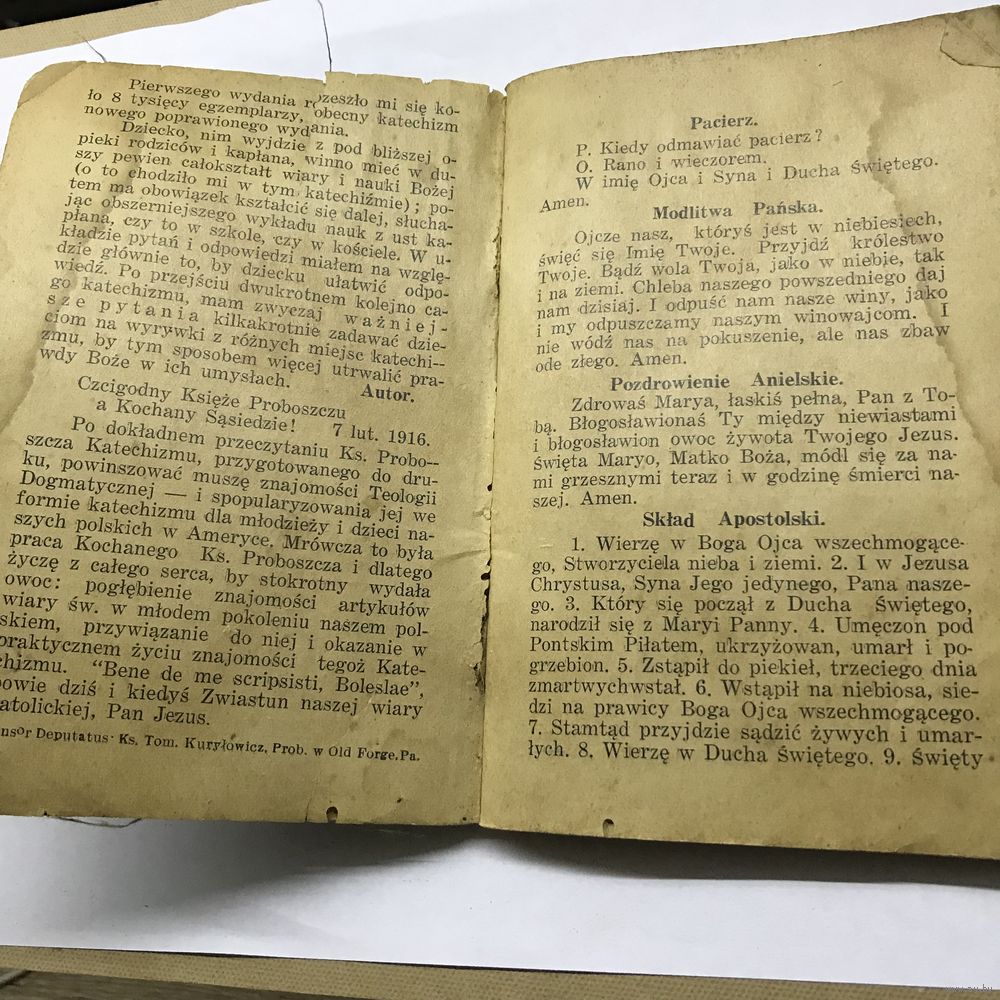 Pierwszego wydania rozeszło mi się ko-
ło 8 tysięcy egzemplarzy, obecny katechizm
nowego poprawionego wydania.
Dziecko, nim wyjdzie z pod bliższej o-
pieki rodziców i kapłana, winno mieć w du-
szy pewien całokształt wiary i nauki Bożej
(o to chodziło mi w tym katechiźmie); po-
tem ma obowiązek kształcić się dalej, słucha-
jąc obszerniejszego wykładu nauk z ust ka-
płana, czy to w szkole, czy w kościele. W u-
kładzie pytań i odpowiedzi miałem na wzglę-
dzie głównie to, by dziecku ułatwić odpo-
wiedź. Po przejściu dwukrotnem kolejno ca-
go katechizmu, mam zwyczaj ważniej-
sze pytania kilkakrotnie zadawać dzie-
ciom na wyrywki z różnych miejsc katechi-
zmu, by tym sposobem więcej utrwalić pra-
wdy Boże w ich umysłach.
Autor.
Czcigodny Księże Proboszczu
a Kochany Sąsiedzie! 7 lut. 1916.
Po dokładnem przeczytaniu Ks. Probo-
szcza Katechizmu, przygotowanego do dru-
ku, powinszować muszę znajomości Teologii
Dogmatycznej — i spopularyzowania jej we
formie katechizmu dla młodzieży i dzieci na-
szych polskich w Ameryce. Mrówcza to była
praca Kochanego Ks. Proboszcza i dlatego
życzę z całego serca, by stokrotny wydała
owoc: pogłębienie znajomości artykułów
wiary św. w młodem pokoleniu naszem pol-
skiem, przywiązanie do niej i okazanie w
praktycznem życiu znajomości tegoż Kate-
chizmu. "Bene de me scripsisti, Boleslae",
powie dziś i kiedyś Zwiastun naszej wiary
atolickiej, Pan Jezus.
nsor Deputatus· Ks. Tom. Kuryłowicz, Prob. w Old Forge,Pa.
Pacierz.
P. Kiedy odmawiać pacierz?
O. Rano i wieczorem.
W imię Ojca i Syna i Ducha Świętego.
Amen.
Modlitwa Pańska.
Ojcze nasz, któryś jest w niebiesiech,
święć się Imię Twoje. Przyjdź królestwo
Twoje. Bądź wola Twoja, jako w niebie, tak
i na ziemi. Chleba naszego powszedniego daj
nam dzisiaj. I odpuść nam nasze winy, jako
i my odpuszczamy naszym winowajcom. I
nie wódź nas na pokuszenie, ale nas zbaw
ode złego. Amen.
Pozdrowienie Anielskie.
Zdrowaś Marya, łaskiś pełna, Pan z To-
bą. Błogosławionaś Ty między niewiastami
i błogosławion owoc żywota Twojego Jezus.
Święta Maryo, Matko Boża, módl się za na-
mi grzesznymi teraz i w godzinę śmierci na-
szej. Amen.
Skład Apostolski.
1. Wierzę w Boga Ojca wszechmogące-
go, Stworzyciela nieba i ziemi. 2. I w Jezusa
Chrystusa, Syna Jego jedynego, Pana nasze-
go. 3. Który się począł z Ducha Świętego,
narodził się z Maryi Panny. 4. Umęczon pod
Pontskim Piłatem, ukrzyżowan, umarł i po-
grzebion. 5. Zstąpił do piekieł, trzeciego dnia
zmartwychwstał. 6. Wstąpił na niebiosa, sie-
dzi na prawicy Boga Ojca wszechmogącego.
7. Stamtąd przyjdzie sądzić żywych i umar-
łych. 8. Wierzę w Ducha Świętego. 9. Święty